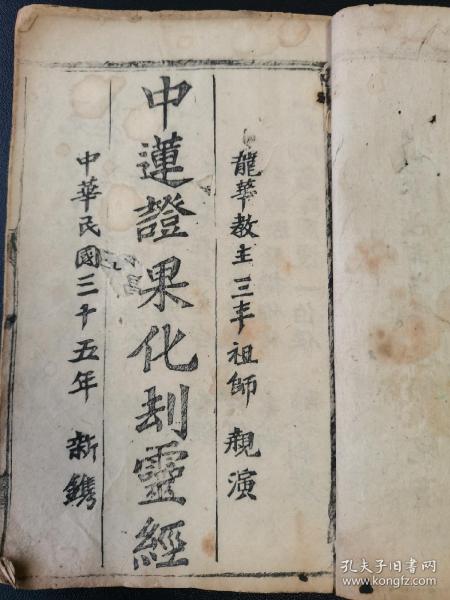 龍華教主三丰祖師 親演
中蓮證果化刦靈經
中華民國三十五年 新鐫
孔夫子旧书网
www.kongfz.com